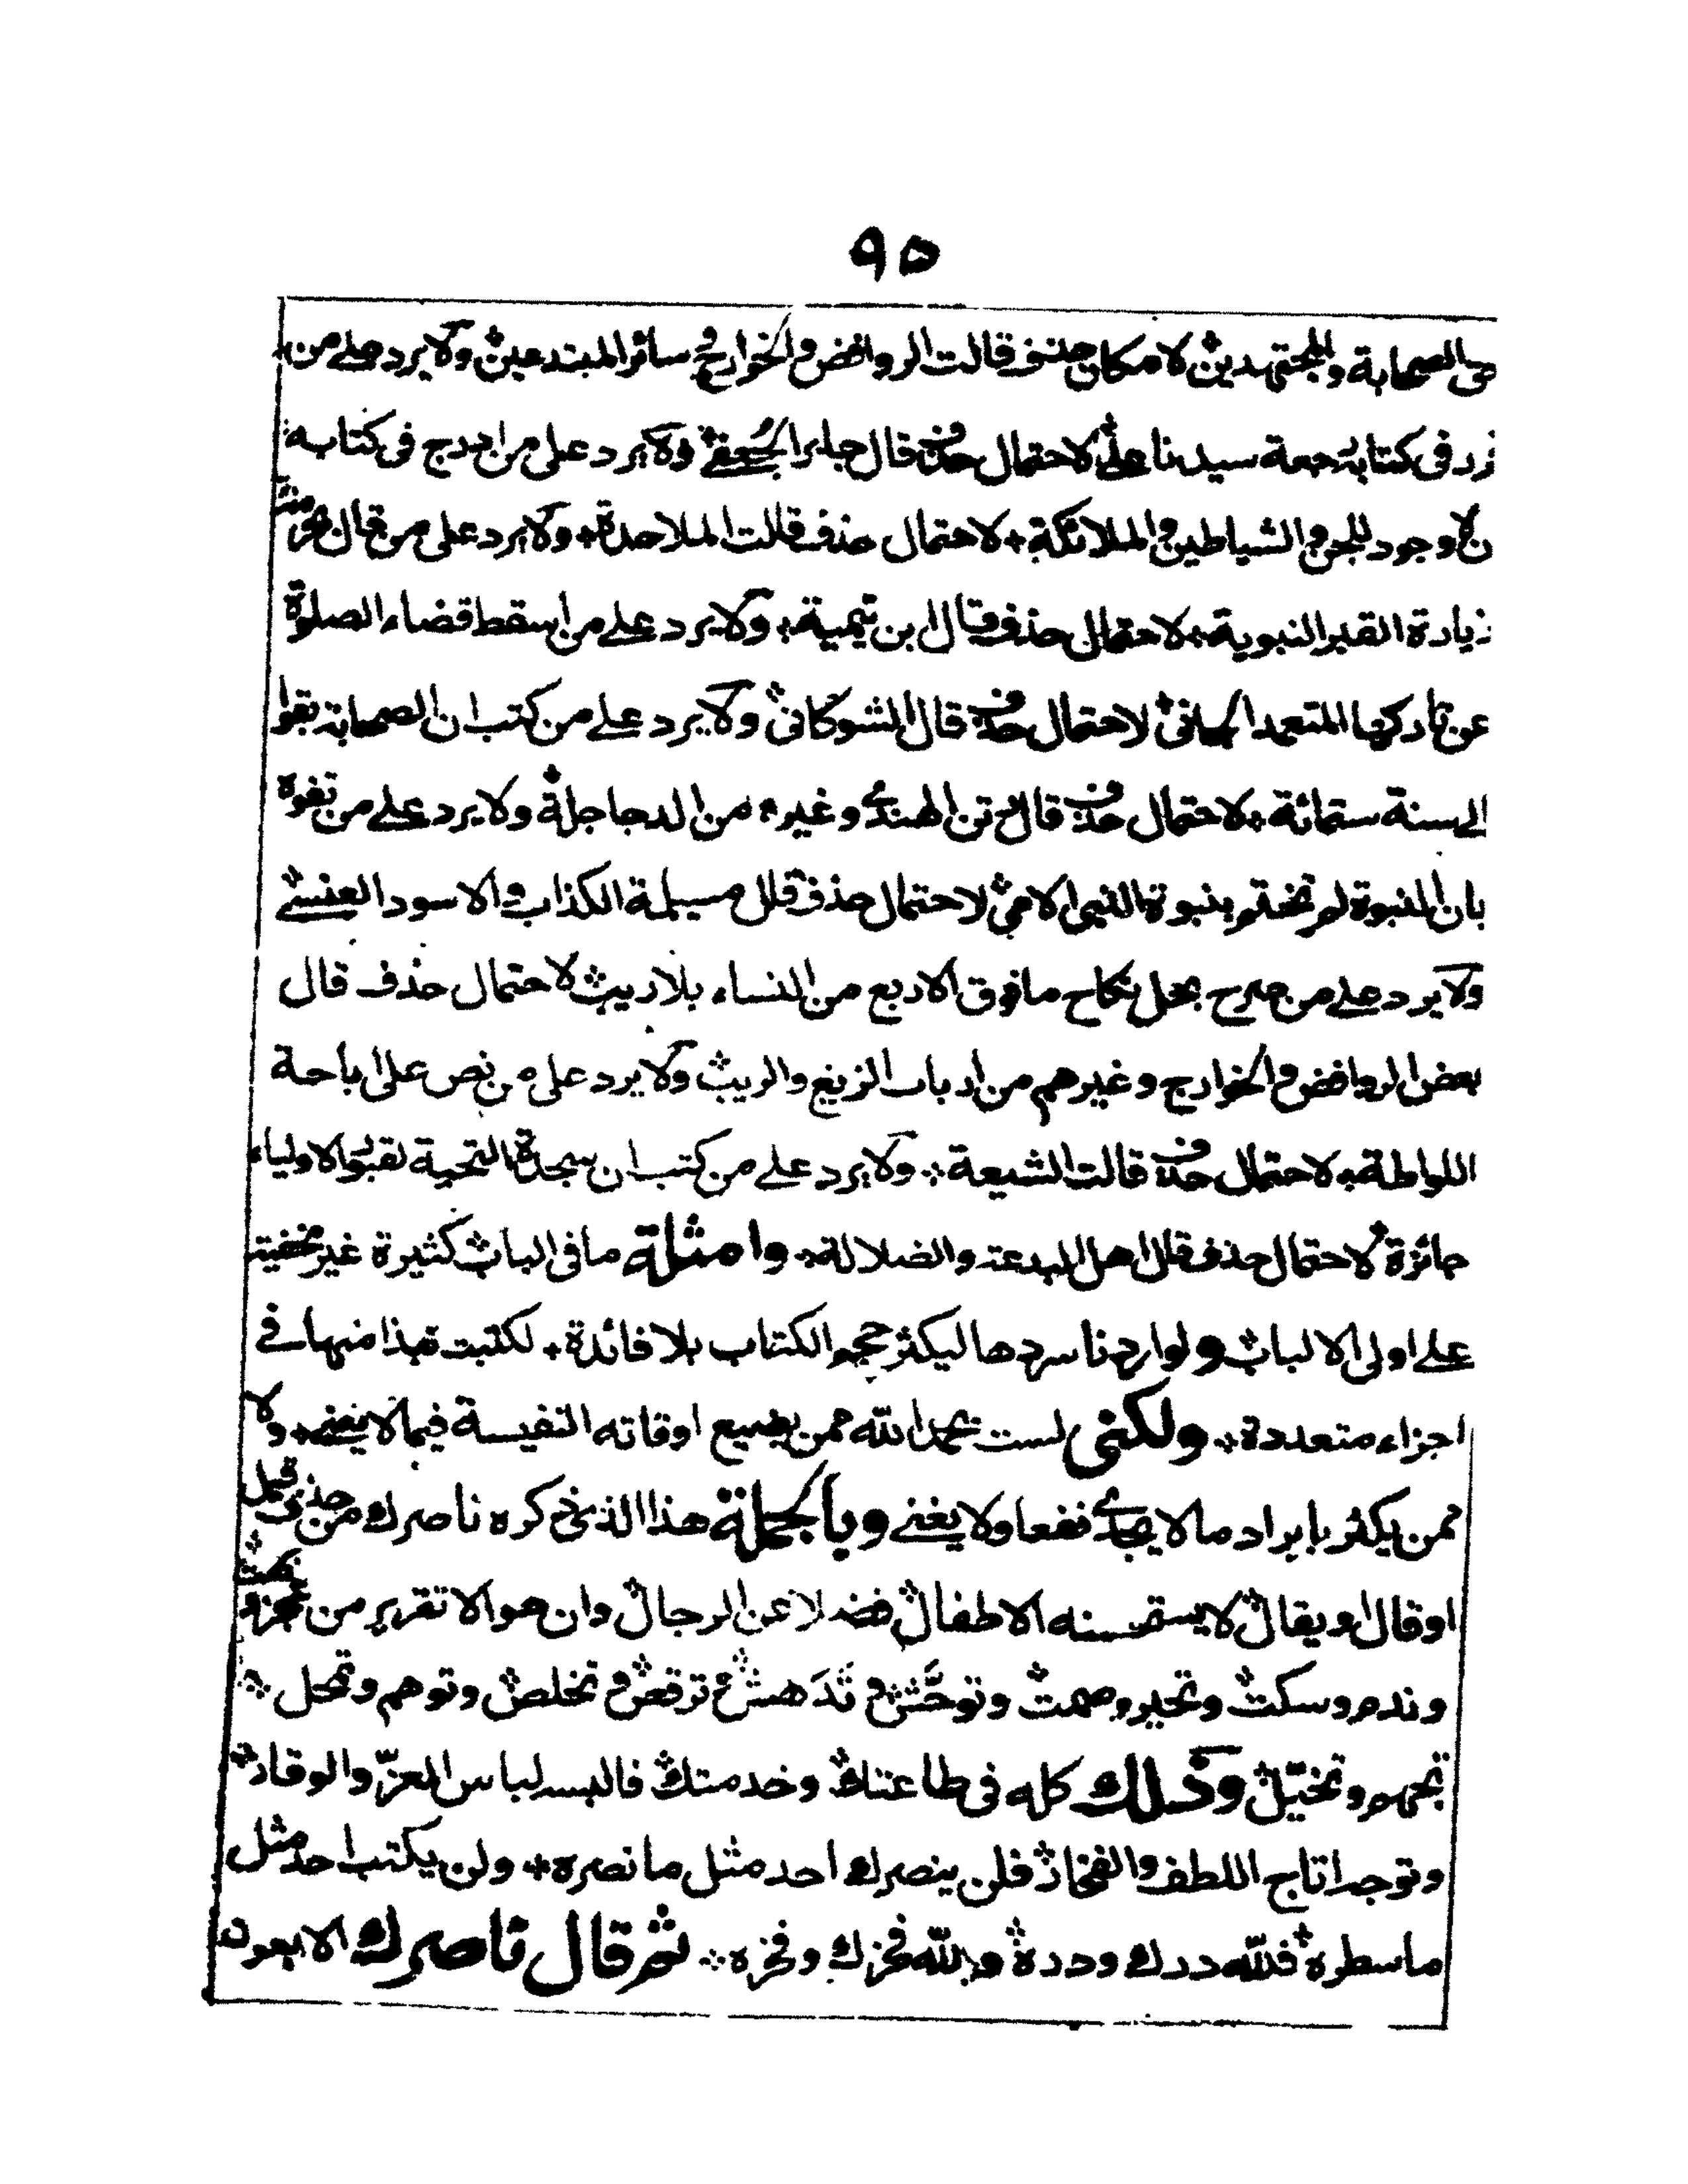 ٩٥
الصحابة والمجتهدين لامكان حذف قالت الروافض والخوارج وسائر المبتدعين ولا يرد على من
فى كتابه رجعة سيدنا على لاحتمال حذف قال جابر الجعفى ولا يرد على من ادرج فى كتابه
لا وجود للجن والشياطين والملائكة لاحتمال حذف قالت الملاحدة ولا يرد على من قال
زيارة القبر النبوية لاحتمال حذف قال ابن تيمية ولا يرد على من اسقط قضاء الصلوة
عن تاركها المتعمد لاحتمال حذف قال الشوكانى ولا يرد على من كتب ان الصحابة بقوا
الى سنة ستمائة لاحتمال حذف قال رتن الهندى وغيره من الدجاجلة ولا يرد على من تفوه
بان النبوة لم تختم بنبوة النبى الامى لاحتمال حذف قال مسيلمة الكذاب والاسود العنسى
ولا يرد على من صرح بحل نكاح ما فوق الاربع من النساء بلا ريب لاحتمال حذف قال
بعض الروافض والخوارج وغيرهم من ارباب الزيغ والريب ولا يرد على من نص على اباحة
اللواطة لاحتمال حذف قالت الشيعة ولا يرد على من كتب ان سجدة التحية لقبور الاولياء
جائزة لاحتمال حذف قال اهل البدعة والضلالة وامثلة ما فى الباب كثيرة غير مخفية
على اولى الالباب ولو اردنا سردها ليكثر حجم الكتاب بلا فائدة لكتبت نبذا منها فى
اجزاء متعددة ولكنى لست بحمد الله ممن يضيع اوقاته النفيسة فيما لا يعنى ولا
ممن يكثر بايراد ما لا يجدى نفعا ولا يغنى وبالجملة هذا الذى ذكره ناصرك من حذف قيل
او قال او يقال لا يستحسنه الاطفال فضلا عن الرجال وان هو الا تقرير من عجز وبهت
وندم وسكت وتحير وصمت وتوحش وتدهش وترقص وتخلص وتوهم وتمحل
وتخيل وذلك كله فى طاعتك وخدمتك فالبسه لباس العز والوقار
وتوجه اتاج اللطف والفخار فلن ينصرك احد مثل ما نصره ولن يكتب احد مثل
ما سطره فلله درك ودره ولله فخرك وفخره ثم قال ناصرك